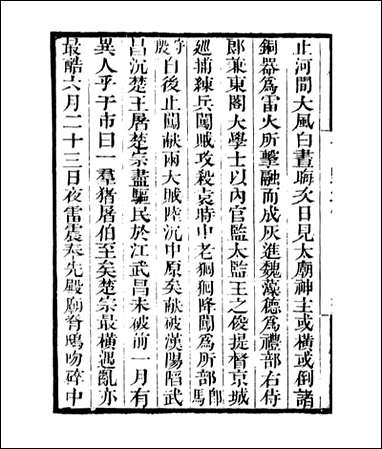 止河間大風白晝晦次日見太廟神主或橫或倒諸
銅器爲雷火所擊融而成灰進魏藻德爲禮部右侍
郎兼東閣大學士以內官監太監王之俊提督京城
廵捕練兵闖賊攻殺袁時中老𤞑𤞑降闖爲所部馬守應
白後止闖献兩大賊陸沉中原矣献破漢陽䧟武
昌沉楚王屠楚宗盡驅民於江武昌未破前一月有
異人乎于市曰一羣猪屠伯至矣楚宗最橫遇亂亦
最酷六月二十三日夜雷震奉先殿廟脊鴟吻碎中